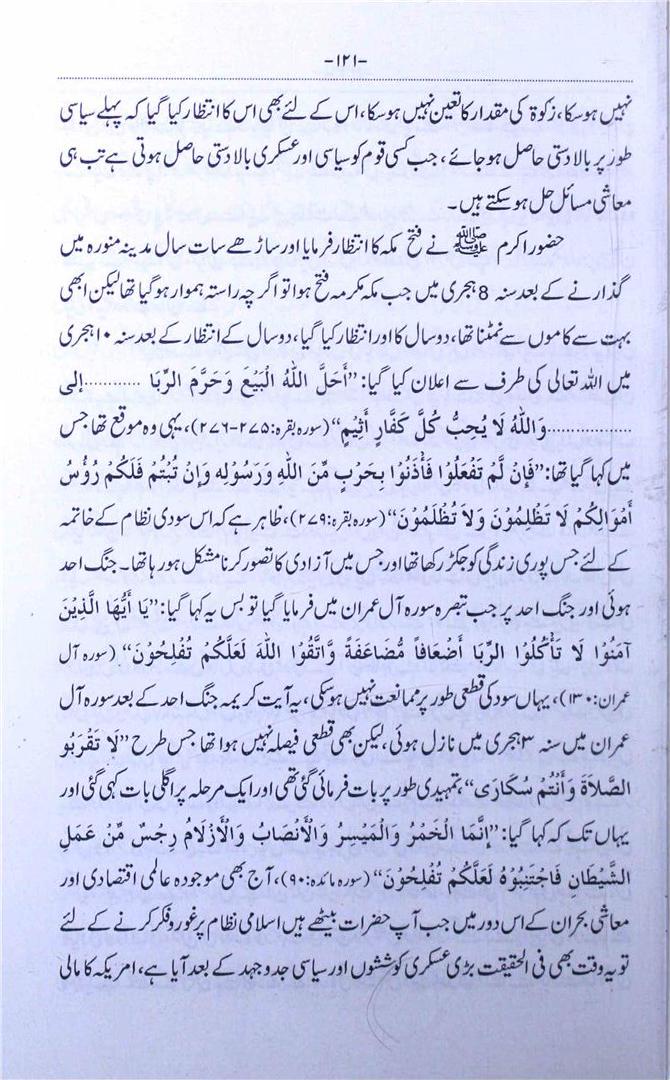 -۱۲۱-
نہیں ہوسکا، زکوۃ کی مقدار کا تعین نہیں ہوسکا، اس کے لئے بھی اس کا انتظار کیا گیا کہ پہلے سیاسی
طور پر بالادستی حاصل ہوجائے، جب کسی قوم کو سیاسی اور عسکری بالادستی حاصل ہوتی ہے تب ہی
معاشی مسائل حل ہوسکتے ہیں۔
حضور اکرم ﷺ نے فتح مکہ کا انتظار فرمایا اور ساڑھے سات سال مدینہ منورہ میں
گذارنے کے بعد سنہ 8 ہجری میں جب مکہ مکرمہ فتح ہوا تو اگرچہ راستہ ہموار ہوگیا تھا لیکن ابھی
بہت سے کاموں سے نمٹنا تھا، دو سال کا اور انتظار کیا گیا، دو سال کے انتظار کے بعد سنہ ۱۰ ہجری
میں اللہ تعالی کی طرف سے اعلان کیا گیا: ”أَحَلَّ اللهُ الْبَيْعَ وَحَرَّمَ الرِّبَا ............إلى
..................وَاللهُ لَا يُحِبُّ كُلَّ كَفَّارٍ أَثِيْمٍ“ (سورہ بقرہ: ۲۷۵-۲۷۶)، یہی وہ موقع تھا جس
میں کہا گیا تھا: ”فَإِنْ لَّمْ تَفْعَلُوْا فَأْذَنُوْا بِحَرْبٍ مِّنَ اللهِ وَرَسُوْلِه وَإِنْ تُبْتُمْ فَلَكُمْ رُؤُسُ
أَمْوَالِكُمْ لَا تَظْلِمُوْنَ وَلَا تُظْلَمُوْنَ“ (سورہ بقرہ: ۲۷۹)، ظاہر ہے کہ اس سودی نظام کے خاتمہ
کے لئے جس پوری زندگی کو جکڑ رکھا تھا اور جس میں آزادی کا تصور کرنا مشکل ہو رہا تھا۔ جنگ احد
ہوئی اور جنگ احد پر جب تبصرہ سورہ آل عمران میں فرمایا گیا تو بس یہ کہا گیا: ”يَا أَيُّهَا الَّذِيْنَ
آمَنُوْا لَا تَأْكُلُوْا الرِّبَا أَضْعَافاً مُّضَاعَفَةً وَّاتَّقُوْا اللهَ لَعَلَّكُمْ تُفْلِحُوْنَ“ (سورہ آل
عمران: ۱۳۰)، یہاں سود کی قطعی طور پر ممانعت نہیں ہوسکی، یہ آیت کریمہ جنگ احد کے بعد سورہ آل
عمران میں سنہ ۳ ہجری میں نازل ہوئی، لیکن بھی قطعی فیصلہ نہیں ہوا تھا جس طرح ”لَا تَقْرَبُو
الصَّلَاةَ وَأَنْتُمْ سُكَارَى“، تمہیدی طور پر بات فرمائی گئی تھی اور ایک مرحلہ پر اگلی بات کہی گئی اور
یہاں تک کہ کہا گیا: ”إِنَّمَا الْخَمْرُ وَالْمَيْسِرُ وَالْأَنْصَابُ وَالْأَزْلَامُ رِجْسٌ مِّنْ عَمَلِ
الشَّيْطَانِ فَاجْتَنِبُوْهُ لَعَلَّكُمْ تُفْلِحُوْنَ“ (سورہ مائدہ: ۹۰)، آج بھی موجودہ عالمی اقتصادی اور
معاشی بحران کے اس دور میں جب آپ حضرات بیٹھے ہیں اسلامی نظام پر غور و فکر کرنے کے لئے
تو یہ وقت بھی فی الحقیقت بڑی عسکری کوششوں اور سیاسی جدوجہد کے بعد آیا ہے، امریکہ کا مالی